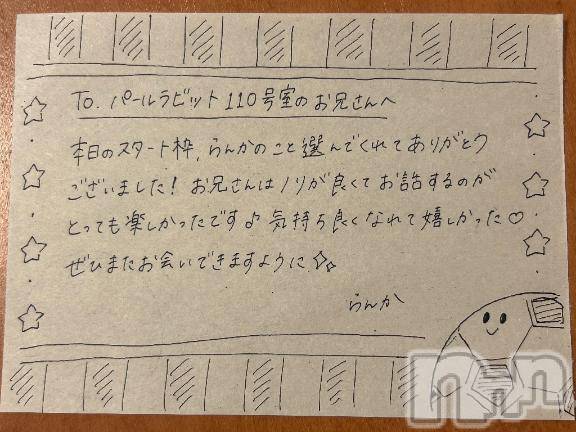 To. パールラビット 110号室のお兄さんへ
本日のスタート枠、らんかのこと選んでくれてありがとう
ございました! お兄さんはノリが良くてお話するのが
とっても楽しかったです♪ 気持ち良くなれて嬉しかった♡
ぜひまたお会いできますように✨
らんか